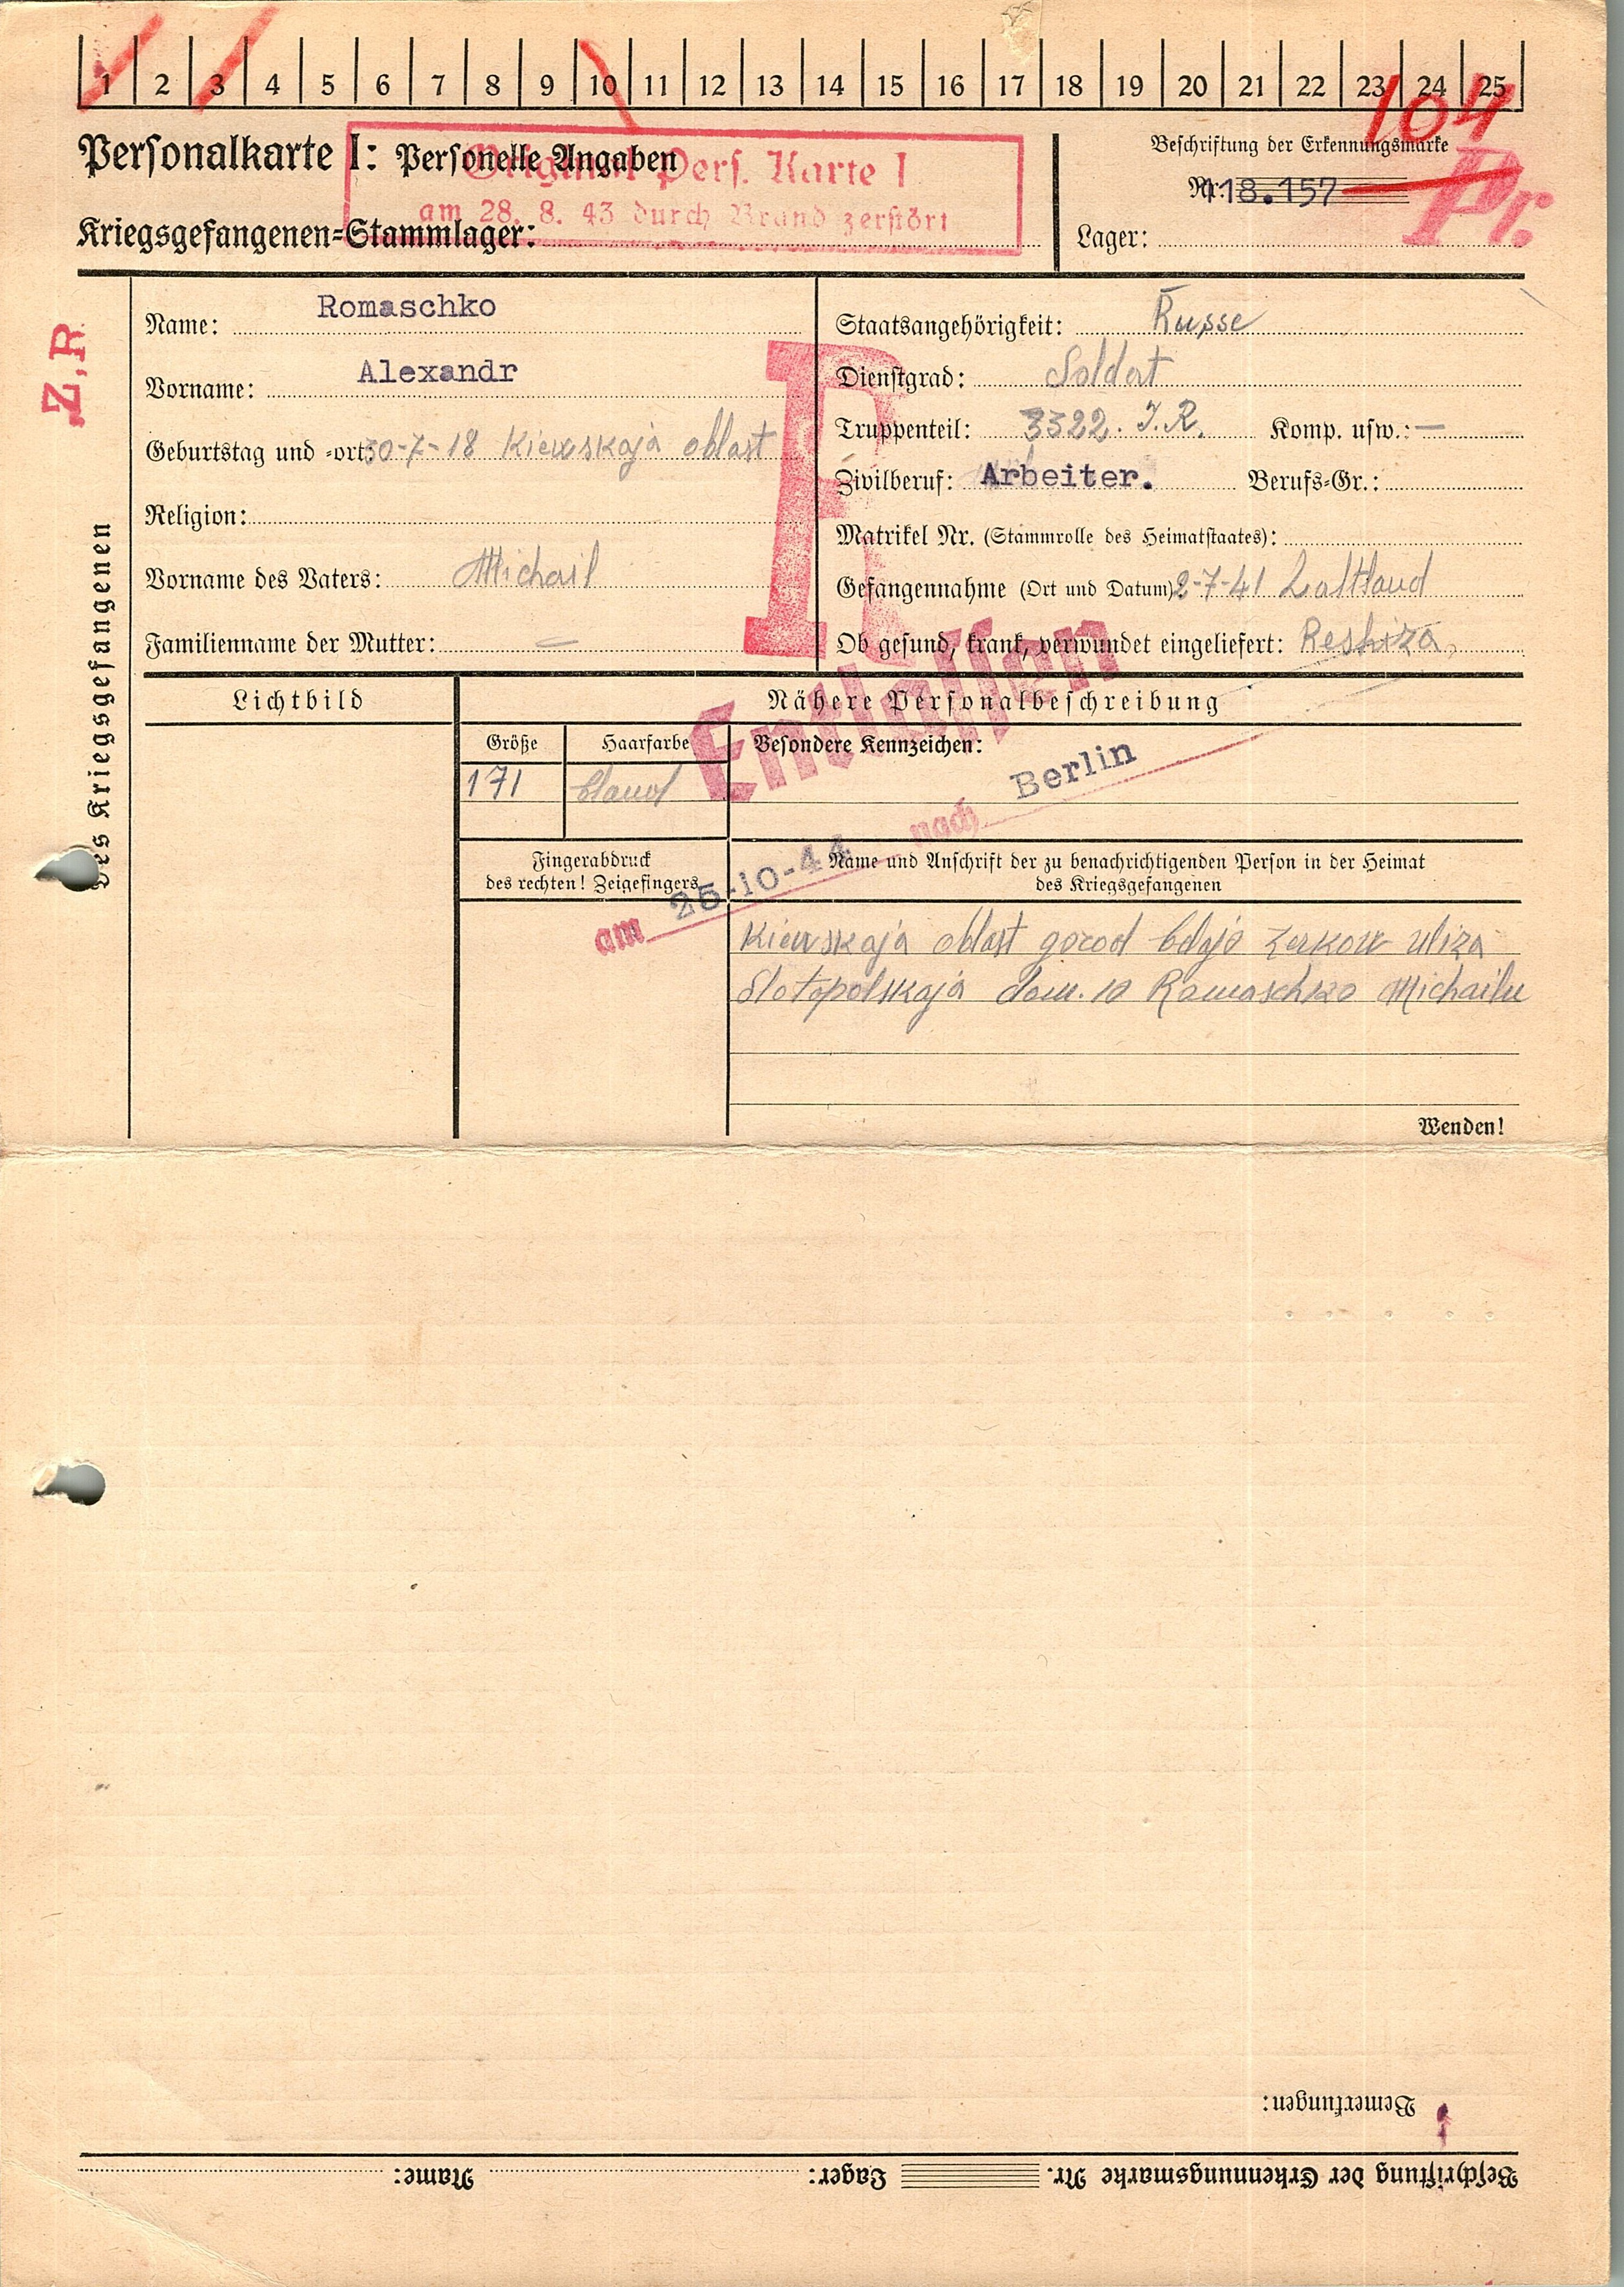 1 2 3 4 5 6 7 8 9 10 11 12 13 14 15 16 17 18 19 20 21 22 23 24 25
104
Personalkarte I: Personelle Angaben
Original Pers. Karte I
am 28. 8. 43 durch Brand zerstört
Kriegsgefangenen=Stammlager:
Beschriftung der Erkennungsmarke
Nr. 118.157
Pr.
Lager:
Z, R
Des Kriegsgefangenen
Name: Romaschko
Vorname: Alexandr
Geburtstag und =ort: 30-7-18 Kiewskaja oblast
Religion:
Vorname des Vaters: Michail
Familienname der Mutter: —
R
Staatsangehörigkeit: Russe
Dienstgrad: Soldat
Truppenteil: 3322. J.R. Komp. usw.: —
Zivilberuf: Arbeiter. Berufs=Gr.:
Matrikel Nr. (Stammrolle des Heimatstaates):
Gefangennahme (Ort und Datum) 2-7-41 Lattland
Ob gesund, krank, verwundet eingeliefert: Reshiza
Lichtbild
Nähere Personalbeschreibung
Größe
Haarfarbe
Besondere Kennzeichen:
171
bland
Entlassen
am 25-10-44 nach Berlin
Fingerabdruck
des rechten! Zeigefingers
Name und Anschrift der zu benachrichtigenden Person in der Heimat
des Kriegsgefangenen
Kiewskaja oblast gorod belaja Zerkow uliza
Slotopolskaja dom. 10 Romaschko Michailu
Wenden!
Bemerkungen:
Beschriftung der Erkennungsmarke Nr. Lager: Name: